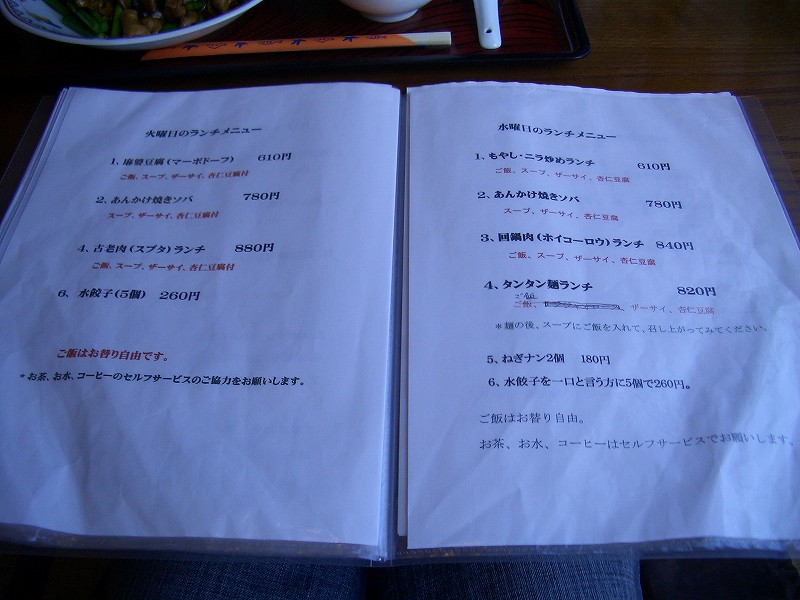 火曜日のランチメニュー
1、麻婆豆腐(マーボドーフ) 610円
ご飯、スープ、ザーサイ、杏仁豆腐付
2、あんかけ焼きソバ 780円
スープ、ザーサイ、杏仁豆腐付
4、古老肉(スブタ)ランチ 880円
ご飯、スープ、ザーサイ、杏仁豆腐付
6、水餃子(5個) 260円
ご飯はお替り自由です。
*お茶、お水、コーヒーのセルフサービスのご協力をお願いします。
水曜日のランチメニュー
1、もやし・ニラ炒めランチ 610円
ご飯、スープ、ザーサイ、杏仁豆腐
2、あんかけ焼きソバ 780円
スープ、ザーサイ、杏仁豆腐
3、回鍋肉(ホイコーロウ)ランチ 840円
ご飯、スープ、ザーサイ、杏仁豆腐
4、タンタン麺ランチ 820円
ご飯
ご飯、 ザーサイ、杏仁豆腐
*麺の後、スープにご飯を入れて、召し上がってみてください。
5、ねぎナン2個 180円
6、水餃子を一口と言う方に5個で260円。
ご飯はお替り自由。
お茶、お水、コーヒーはセルフサービスでお願いします。